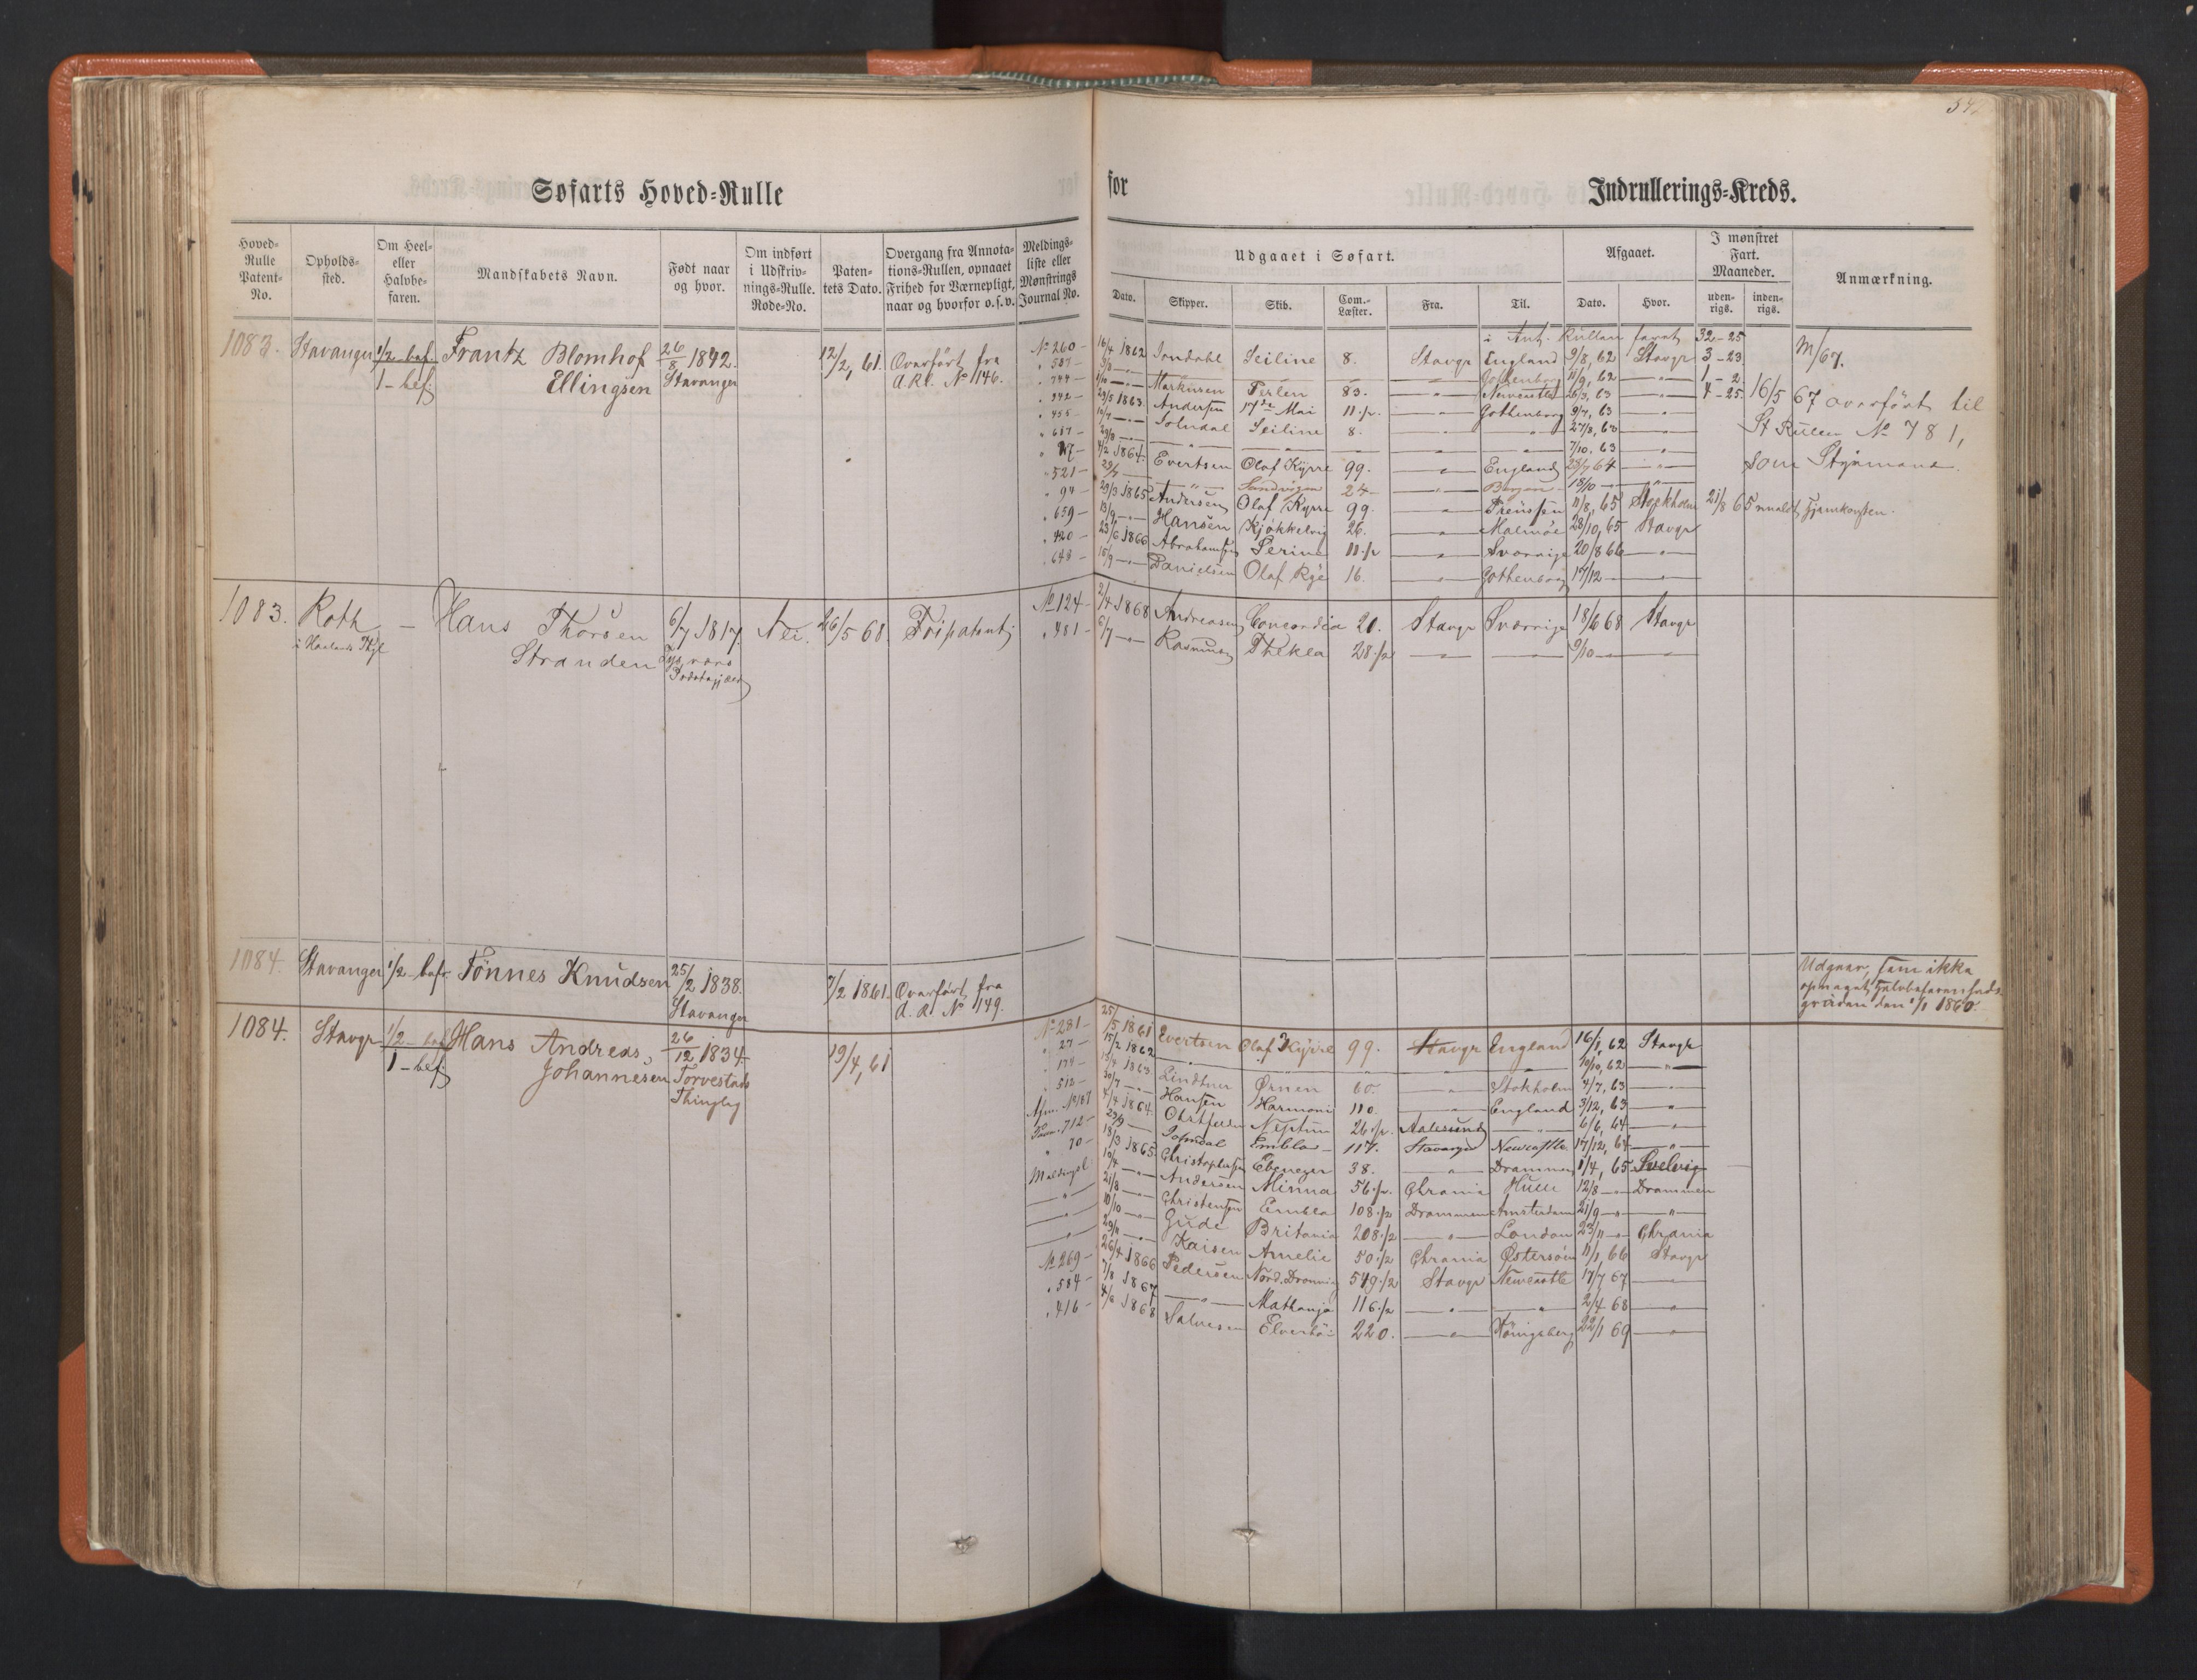 Søfarts Hoved-Rulle
for
Indrullerings-Kreds.
Hoved-Rulle Patent-No.
Opholds-sted.
Om Heel- eller Halvbe-faren.
Mandskabets Navn.
Født naar og hvor.
Om indført i Udskriv-nings-Rulle. Rode-No.
Paten-tets Dato.
Overgang fra Annota-tions-Rullen, opnaaet Frihed for Værnepligt, naar og hvorfor o.s.v.
Meldings-liste eller Mønstrings Journal No.
Udgaaet i Søfart.
Dato.
Skipper.
Skib.
Com.-Læster.
Fra.
Til.
Afgaaet.
Dato.
Hvor.
I mønstret Fart. Maaneder.
uden-rigs.
inden-rigs.
Anmærkning.
1083. Stavanger 1/2 bef. Frantz Blomhof 26/8 1842. 12/2, 61. Overført fra
1-bef. Ellingsen Stavanger A.Rl. No 146.
i Ant. Rullen faret 32-25
No 260 16/4 1862 Jondahl Seiline 8. Stavgr England 9/8, 62 Stavgr 3-23 M/67.
587 Gothenborg 11/9, 62 1-2
744 Markusen Perlen 83. Newcastle 26/3, 63 4-25 16/5 67 overført til
342 29/5 1863 Andersen 17de Mai 11 1/2 Gothenborg 9/7, 63 St Rullen No 781,
455 Seiline 8. 27/8, 63 som Styrmand.
687 7/10, 63
17 4/2 1864 Evertsen Olaf Kyrre 99. England 28/7 64
521 Sandvigen 24 Bergen 18/10
94 29/3 1865 Andersen Olaf Kyrre 99. Preussen 11/8, 65 Stockholm 21/8 65 meldt Hjemkomsten.
659 13/9 Hansen Kjøkkelvig 26. Malmøe 28/10, 65 Stavgr
420 23/6 1866 Abrahamsen Serine 11 1/2 Sverrige 20/8 66
648 15/9 Danielsen Olaf Rye 16. Gothenborg 17/12
1083. Roth - Hans Thorsen 6/7 1817. Nei. 26/5 68. Fripatent
Stranden
Præstegjæld
No 124 2/4 1868 Andreasen Concordia 20. Stavgr Sverrige 18/6 68 Stavgr
481 6/7 Rasmusen Thekla 28 1/2 9/10
1084. Stavanger 1/2 bef. Tønnes Knudsen 25/2 1838. 7/2 1861. Overført fra
Stavanger A.Rl. No 149.
Udgaar, som ikke
opnaaet Halvbefarenheds
graden den 1/1 1860.
1084. Stavgr 1/2 bef Hans Andreas, 26/12 1834 19/4, 61
1-bef. Johannesen Torvestads
Thinglag
No 281 25/5 1861 Evertsen Olaf Kyrre 99. Stavgr England 16/1, 62 Stavgr
27 15/2 1862 10/10, 62
174 15/4 1863 Lindtner Ørnen 60. Stokholm 4/7, 63
512 30/7 Hansen Harmoni 110. England 3/12, 63
4/4 1864 Neptun 26 1/2 Aalesund 6/6, 64
712 29/9 Jonsdal Embla 117. Stavanger Newcastle 17/12, 64
70 18/3 1865 Christophersen Ebenezer 38. Drammen 1/4, 65 Svelvig
Meldingsl. 19/4 Andersen Minna 56 1/2 Chrania Hull 12/8 Drammen
21/8 Christensen Embla 108 1/2 Drammen Amsterdam 21/9
10/10 Gude Britania 208 1/2 London 23/11 Chrania
29/11 Kaisen Amelie 50 1/2 Chrania Østersøen 11/1 66 Stavgr
No 269 26/4 1866 Pedersen Nord. Dronning 549 1/2 Stavgr Newcastle 17/7 67
584 7/8 1867 Mathanja 116 1/2 2/4 68
416 4/6 1868 Salvesen 220. Königsberg 22/1 69